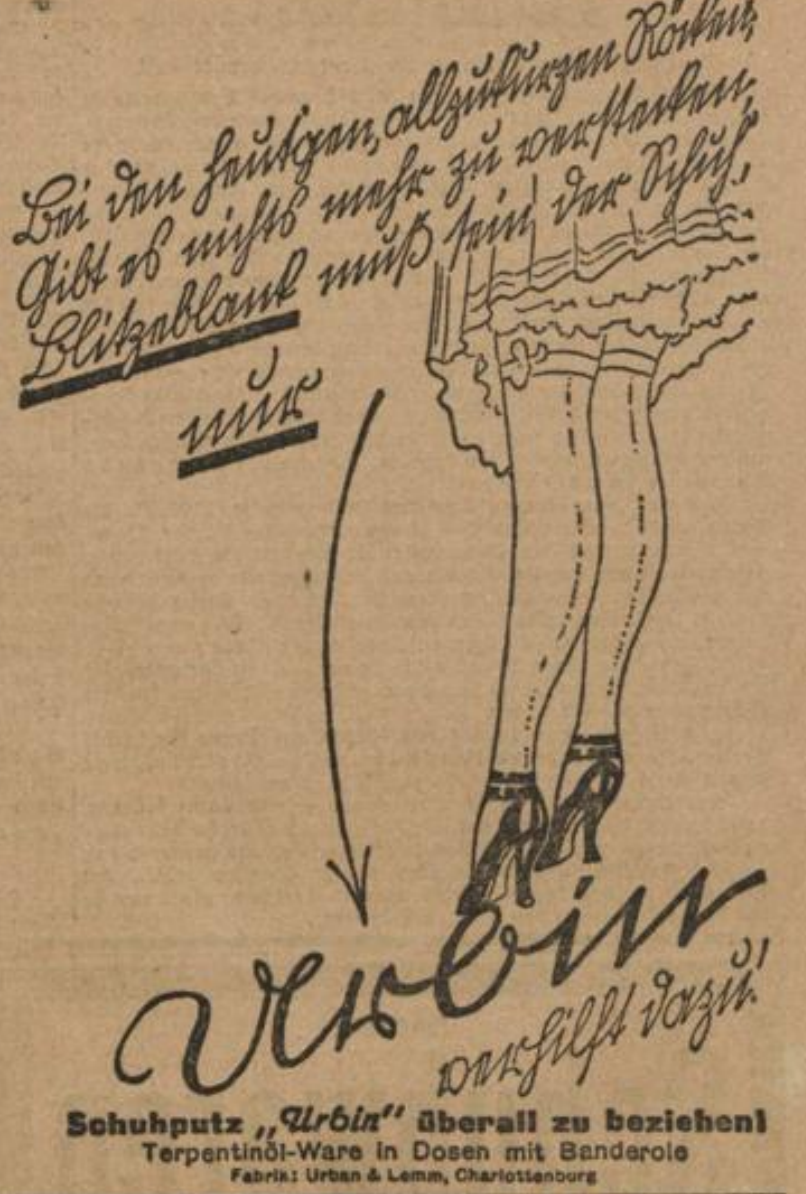 Bei den heut'gen, allzukurzen Röcken,
Gibt es nichts mehr zu verstecken,
Blitzeblank muß sein der Schuh,
nur
Urbin
verhilft dazu!
Schuhputz „Urbin“ überall zu beziehen!
Terpentinöl-Ware in Dosen mit Banderole
Fabrik: Urban & Lemm, Charlottenburg